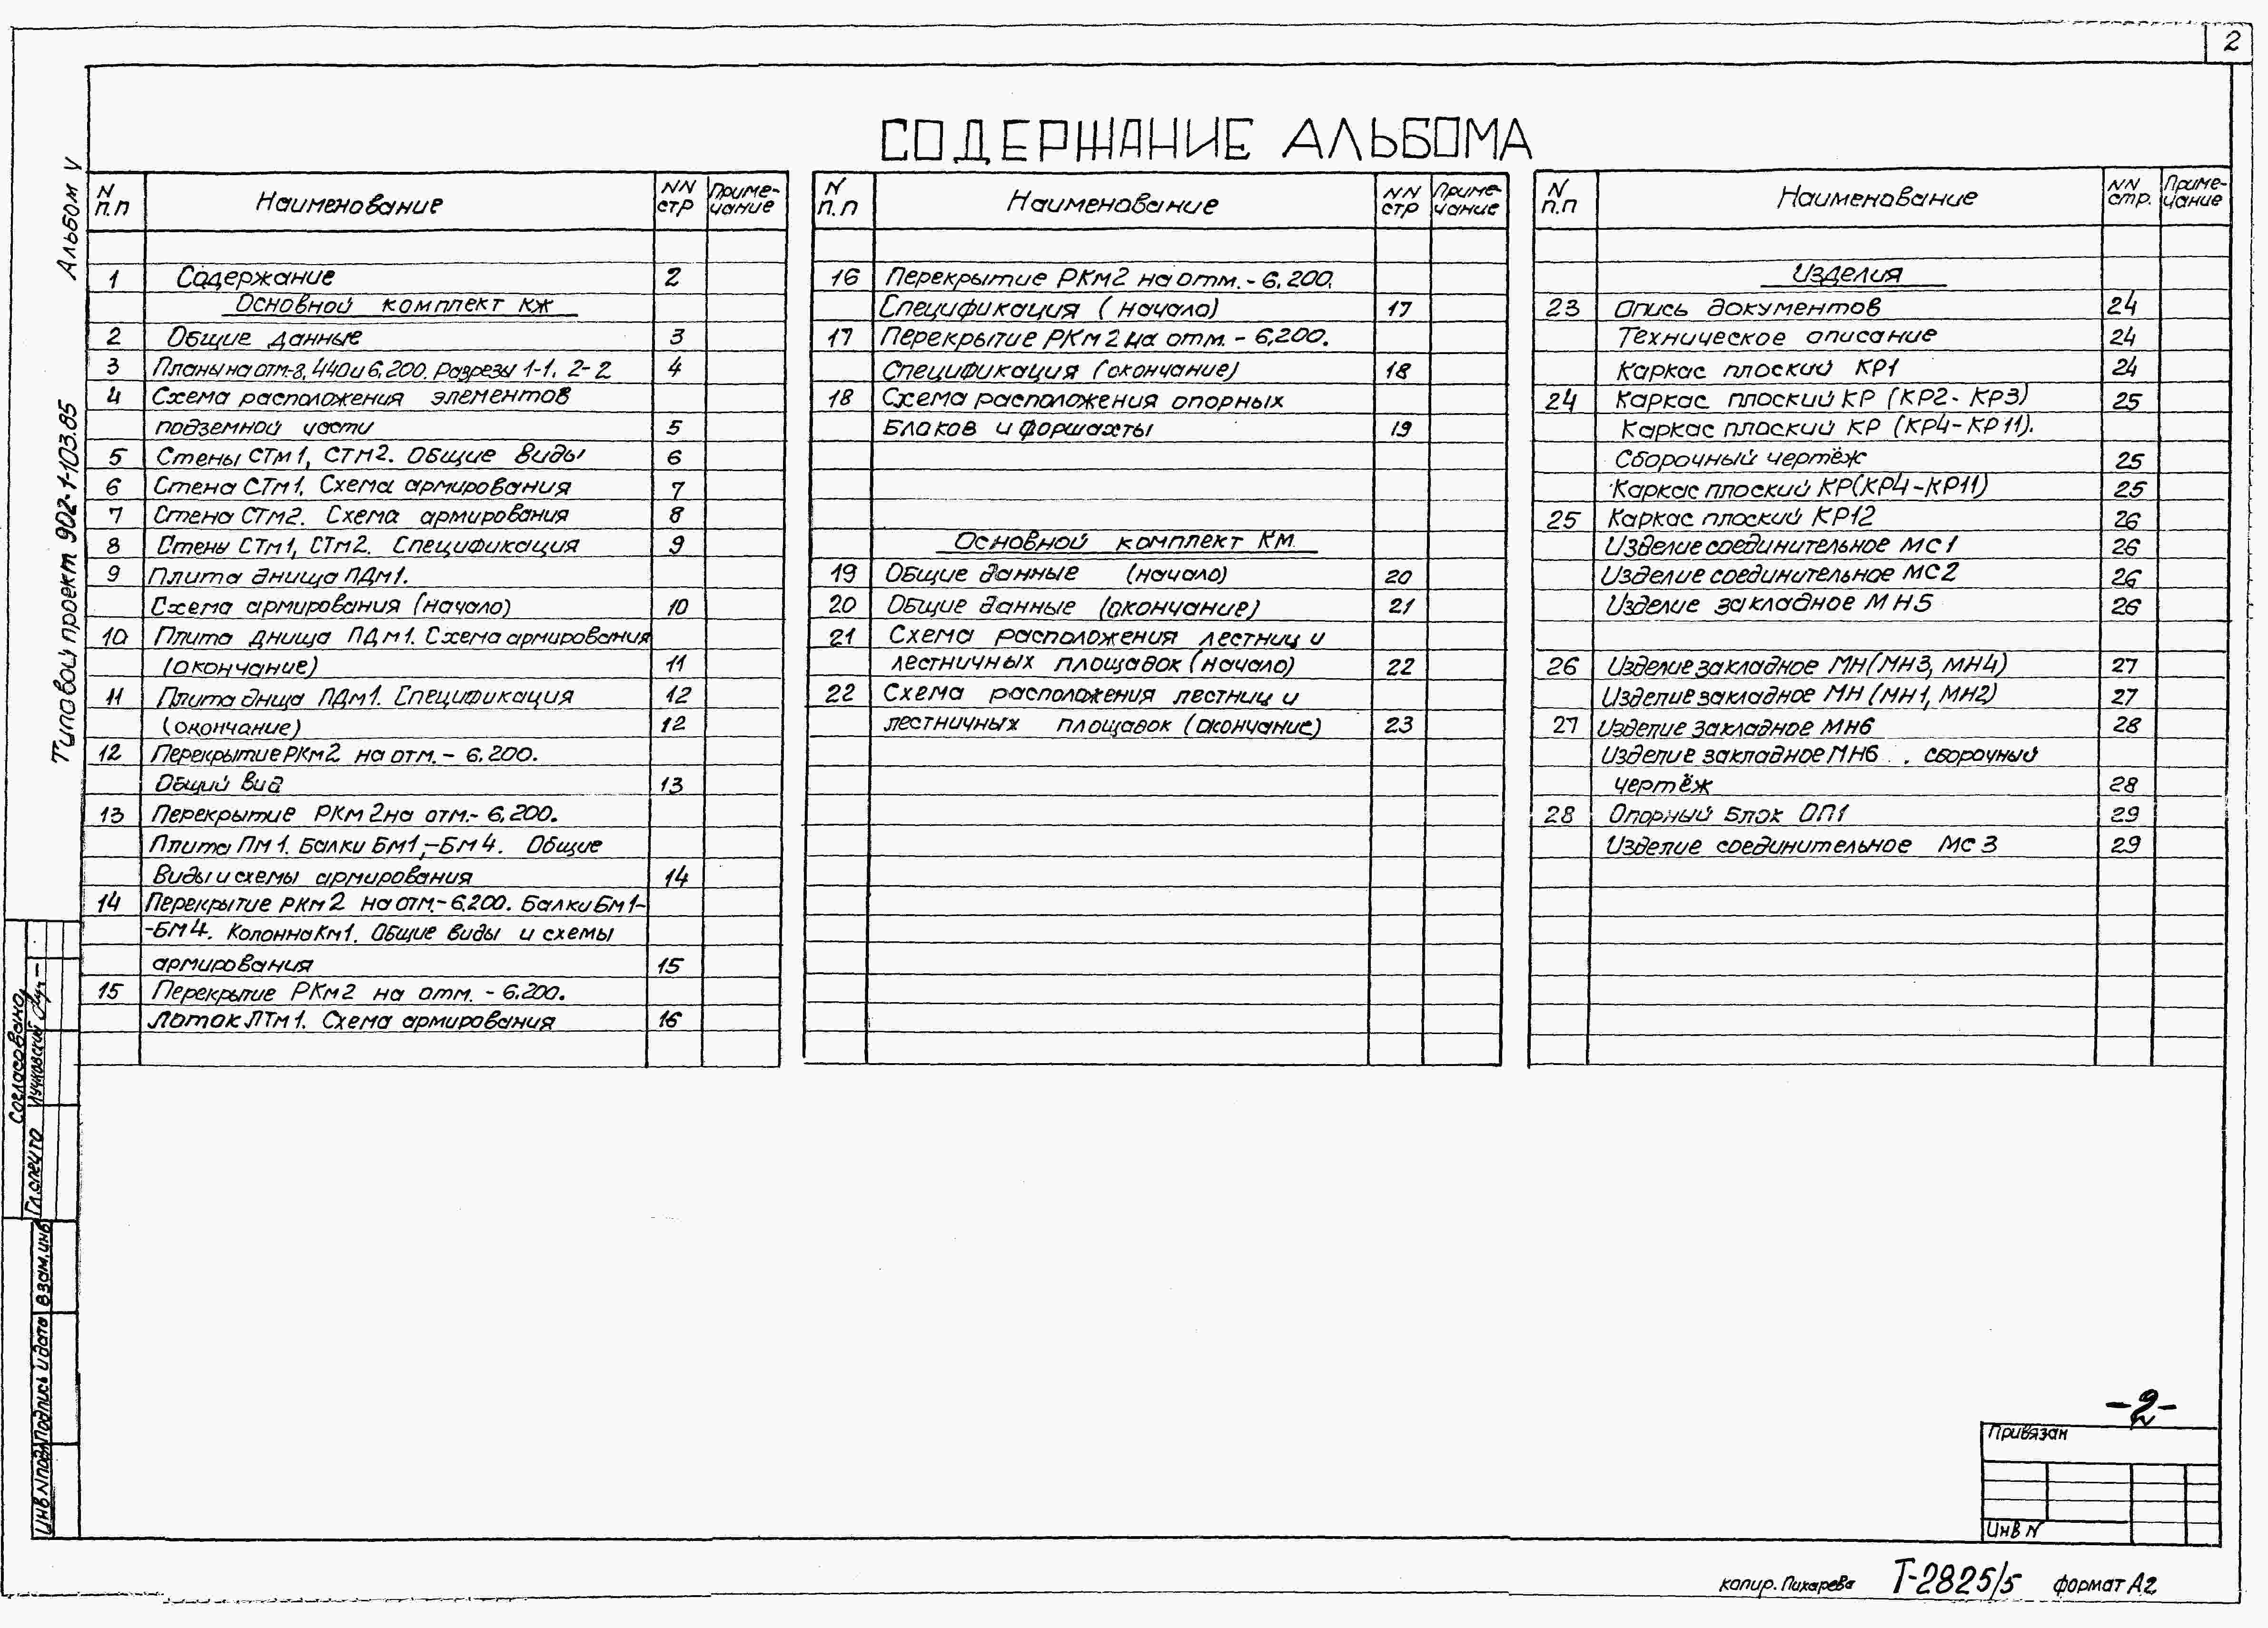 2
СОДЕРЖАНИЕ АЛЬБОМА
Альбом V
Типовой проект 902-1-103.85
N п.п Наименование NN стр Примечание
1 Содержание 2
Основной комплект КЖ
2 Общие данные 3
3 Планы на отм-8,440 и 6,200. Разрезы 1-1, 2-2 4
4 Схема расположения элементов
подземной части 5
5 Стены СТм1, СТм2. Общие виды 6
6 Стена СТм1. Схема армирования 7
7 Стена СТм2. Схема армирования 8
8 Стены СТм1, СТм2. Спецификация 9
9 Плита днища ПДм1.
Схема армирования (начало) 10
10 Плита днища ПДм1. Схема армирования
(окончание) 11
11 Плита днща ПДм1. Спецификация 12
(окончание) 12
12 Перекрытие РКм2 на отм. - 6.200.
Общий вид 13
13 Перекрытие РКм2 на отм. - 6,200.
Плита Пм1. Балки Бм1,-Бм4. Общие
виды и схемы армирования 14
14 Перекрытие РКм2 на отм.-6,200. Балки Бм1-
-Бм4. Колонна Км1. Общие виды и схемы
армирования 15
15 Перекрытие РКм2 на отм. - 6.200.
Лоток ЛТм1. Схема армирования 16
N п.п Наименование NN стр Примечание
16 Перекрытие РКм2 на отм. - 6,200.
Спецификация (начало) 17
17 Перекрытие РКм2 на отм. - 6,200.
Спецификация (окончание) 18
18 Схема расположения опорных
блоков и форшахты 19
Основной комплект КМ
19 Общие данные (начало) 20
20 Общие данные (окончание) 21
21 Схема расположения лестниц и
лестничных площадок (начало) 22
22 Схема расположения лестниц и
лестничных площадок (окончание) 23
N п.п Наименование NN стр. Примечание
Изделия
23 Опись документов 24
Техническое описание 24
Каркас плоский КР1 24
24 Каркас плоский КР (КР2-КР3) 25
Каркас плоский КР (КР4-КР11).
Сборочный чертёж 25
Каркас плоский КР(КР4-КР11) 25
25 Каркас плоский КР12 26
Изделие соединительное МС1 26
Изделие соединительное МС2 26
Изделие закладное МН5 26
26 Изделие закладное МН(МН3, МН4) 27
Изделие закладное МН (МН1, МН2) 27
27 Изделие закладное МН6 28
Изделие закладное МН6 . Сборочный
чертёж 28
28 Опорный блок ОП1 29
Изделие соединительное МС3 29
Согласовано
Гл.спец ТО
Инв N подл Подпись и дата Взам.инв
-2-
Привязан
Инв N
копир. Пихарева Т-2825/5 формат А2